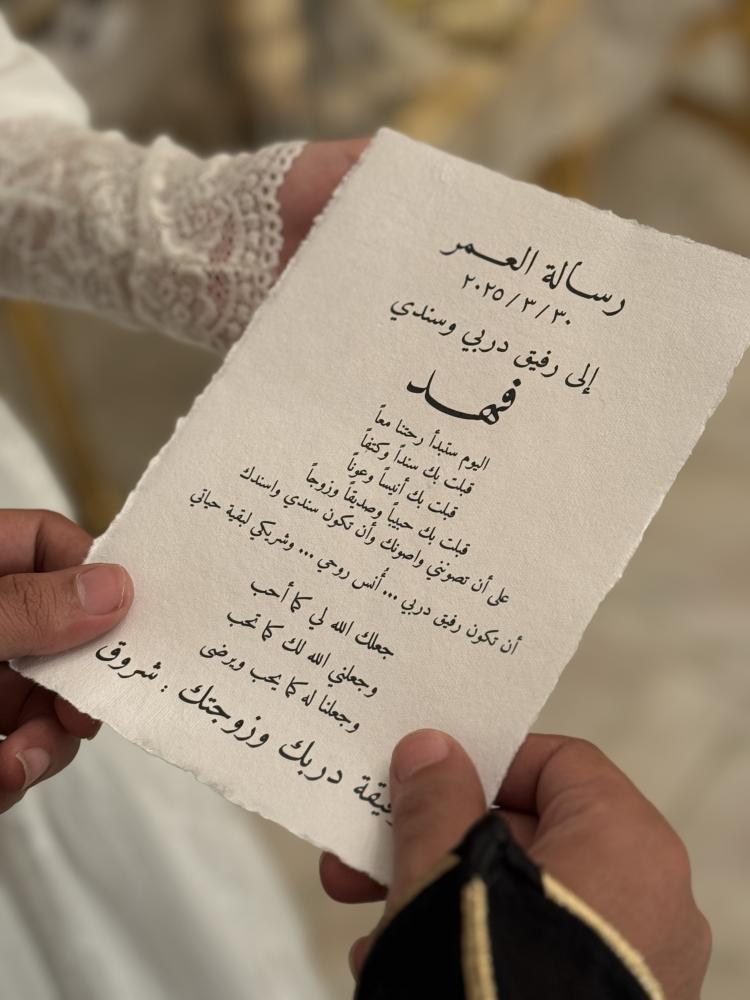 رسالة العمر
٢٠٢٥/٣/٣٠
إلى رفيق دربي وسندي
فهد
اليوم ستبدأ رحتنا معاً
قبلت بك سنداً وكتفاً
قبلت بك أنيساً وعوناً
قبلت بك حبيباً وصديقاً وزوجاً
على أن تصونني واصونك وأن تكون سندي واسندك
أن تكون رفيق دربي ... أُنس روحي ... وشريكي لبقية حياتي
جعلك الله لي كما أحب
وجعلني الله لك كما تحب
وجعلنا له كما يحب ويرضى
دربك وزوجتك : شروق